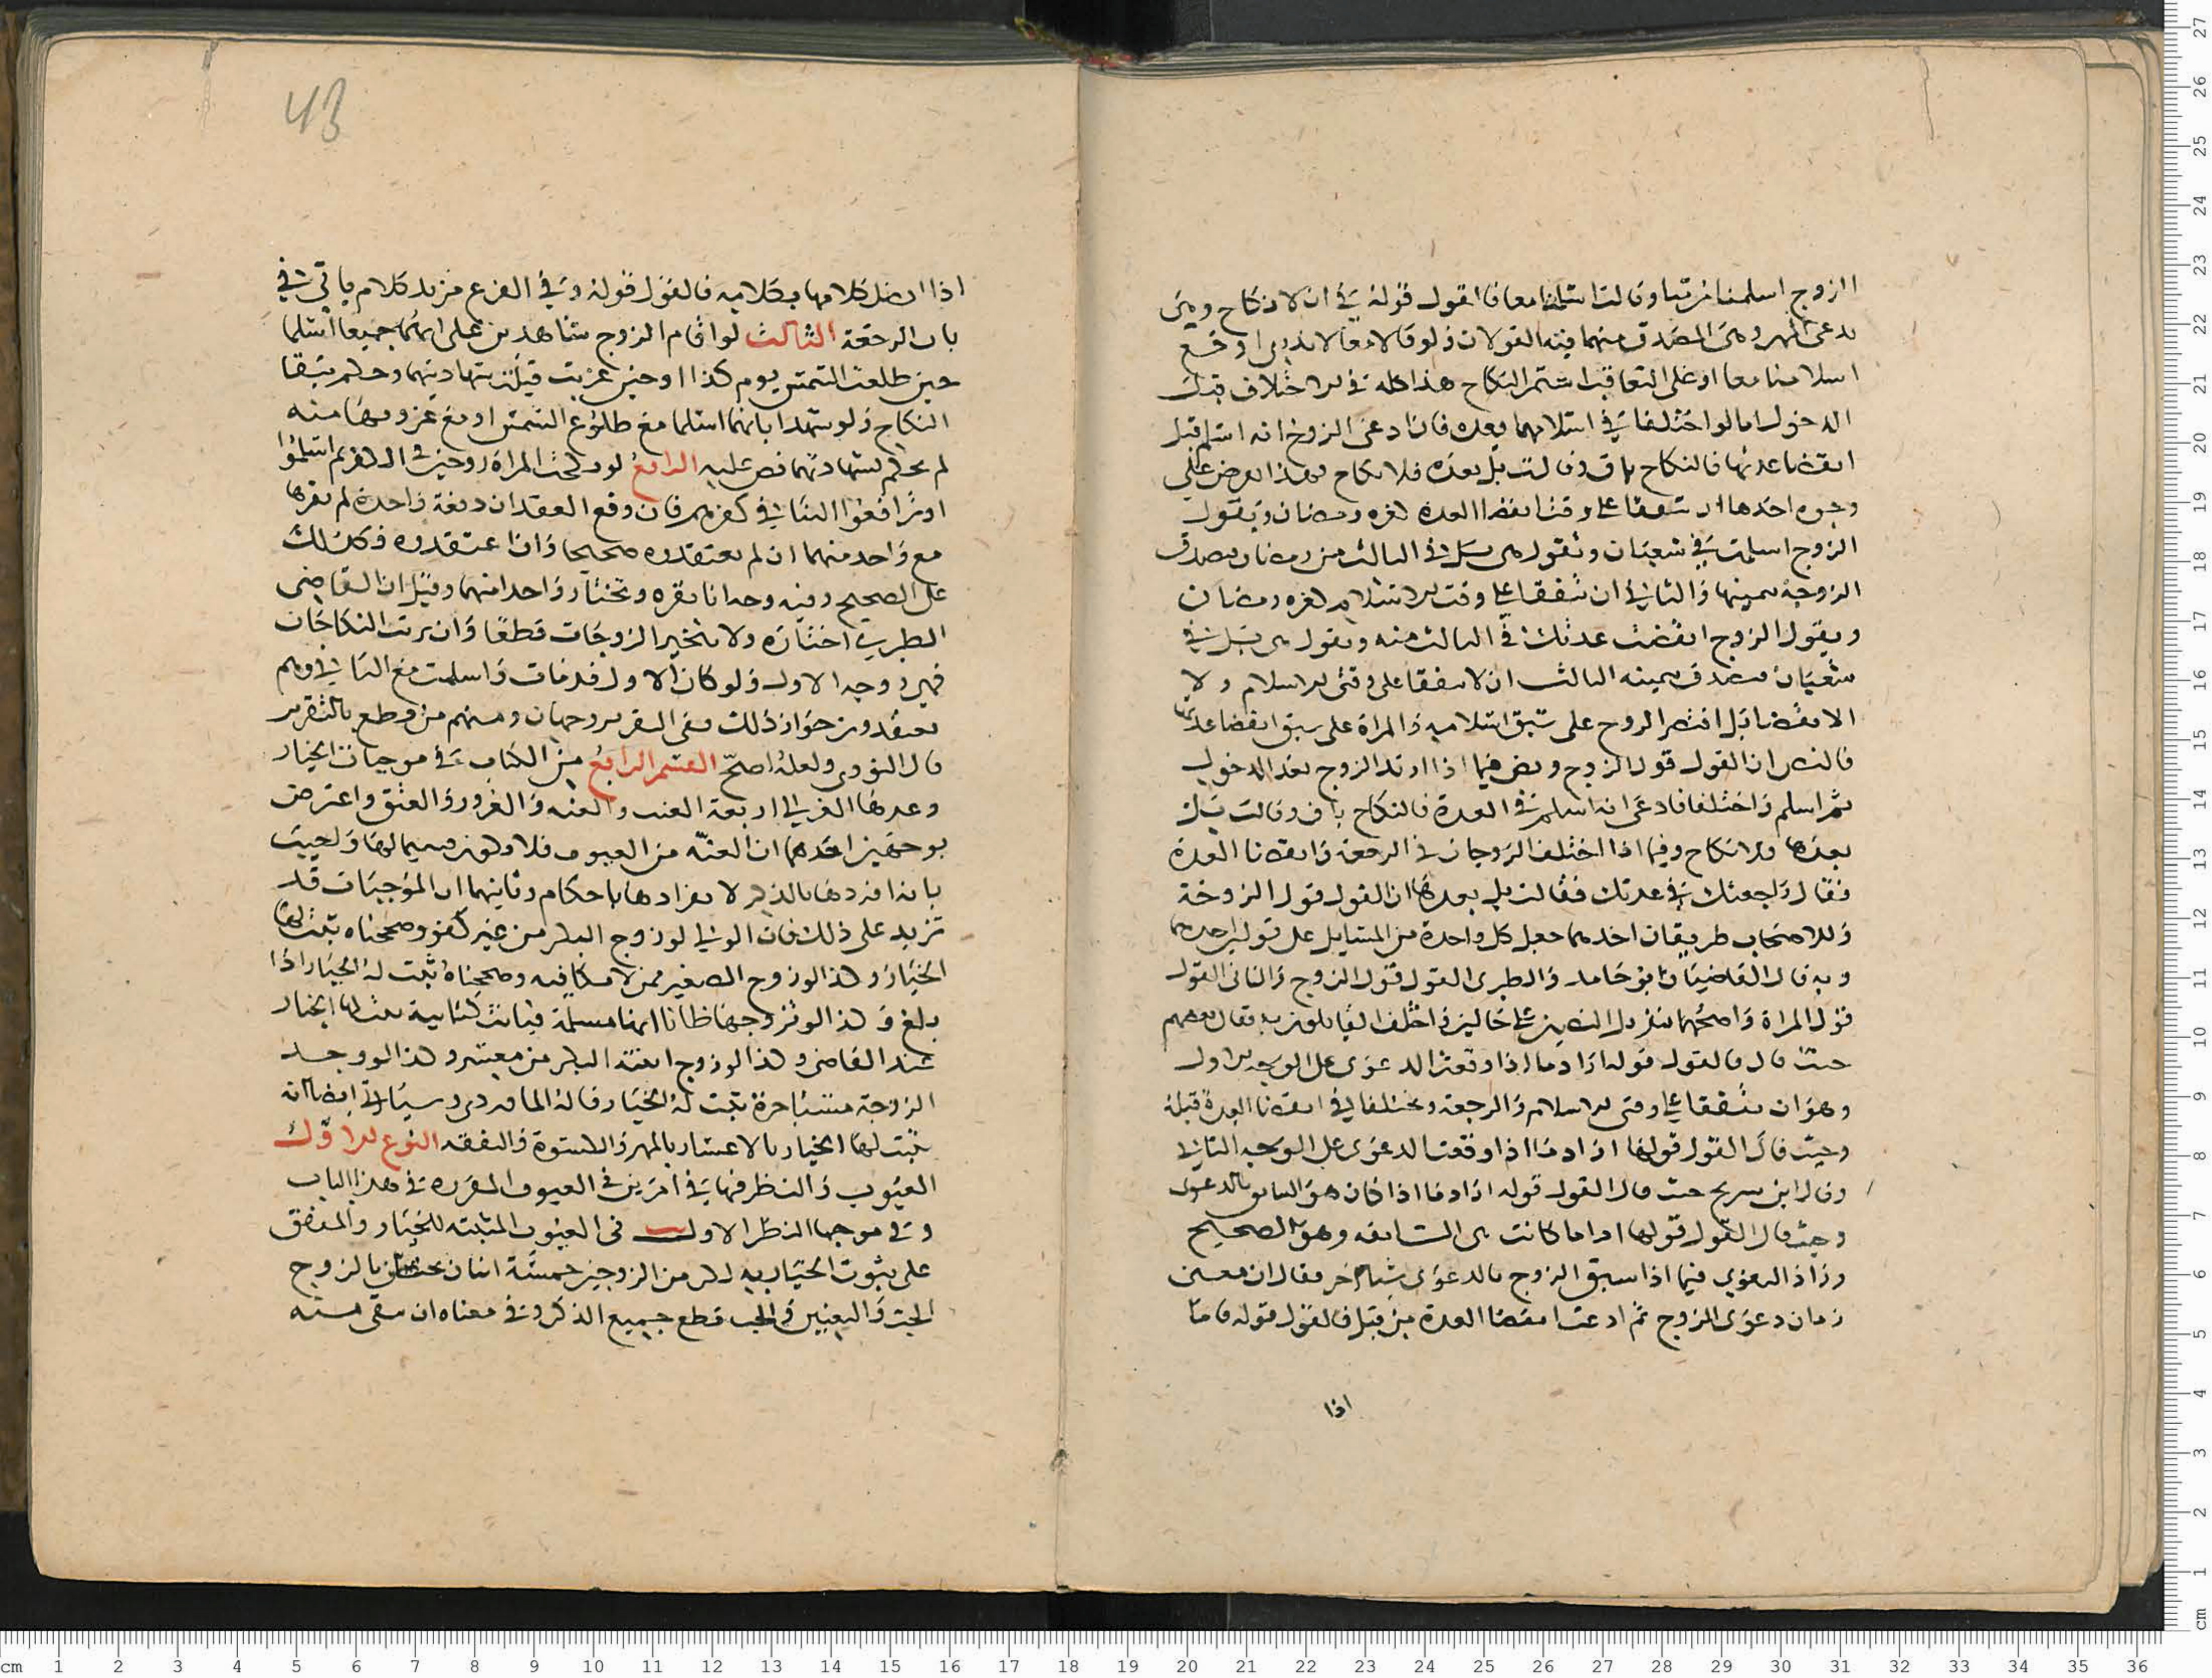 الزوج اسلمنا مرتبا وقالت اسلمنا معا فالقول قوله في ان لا نكاح وهي
تدعى المهر وهي المصدق منهما فيه القولان ولو قالا معا لا ندري اوقع
اسلامنا معا او على التعاقب استمر النكاح هذا كله في الاختلاف قبل
الدخول اما لو اختلفا في اسلامهما بعده فان ادعى الزوج انه اسلم قبل
انقضا عدتها فالنكاح باق وقالت بل بعده فلا نكاح فهذا يعرض على
وجوه احدها ان يتفقا على وقت انقضا العدة كغرة رمضان ويقول
الزوج اسلمت في شعبان وتقول هي بل في الثالث من رمضان فيصدق
الزوجة بيمينها والثاني ان يتفقا على وقت الاسلام كغرة رمضان
ويقول الزوج انقضت عدتك في الثالث منه وتقول هي بل في
شعبان فيصدق بيمينه الثالث ان لا يتفقا على وقتى الاسلام ولا
الانقضا بل اقتصر الزوج على سبق اسلامه والمراة على سبق انقضا عدتها
فالنص ان القول قول الزوج ونص فيما اذا ارتد الزوج بعد الدخول
ثم اسلم واختلفا فادعى انه اسلم في العدة فالنكاح باق وقالت بل
بعدها فلا نكاح وفيما اذا اختلف الزوجان في الرجعة وانقضا العدة
فقال راجعتك في عدتك فقالت بل بعدها ان القول قول الزوجة
وللاصحاب طريقان احدهما جعل كل واحدة من المسايل على قولين احدهما
وبه قال القاضيان ابو حامد والطبرى القول قول الزوج والثانى القول
قول المراة واصحهما تنزيل النصين على حالين واختلف القايلون به فقال بعضهم
حيث قال فالقول قوله اراد ما اذا وقعت الدعوى على الوجه الاول
وهو ان يتفقا على وقتى الاسلام والرجعة ويختلفا في انقضا العدة قبله
وحيث قال القول قولها اراد ما اذا وقعت الدعوى على الوجه الثاني
وقال ابن سريج حيث قال القول قوله اراد ما اذا كان هو السابق بالدعوى
وحيث قال القول قولها اراد ما كانت هي السابقه وهو الصحيح
وزاد البغوي فيما اذا سبق الزوج بالدعوى شيا اخر فقال ان مضى
زمان دعوى الزوج ثم ادعت انقضا العدة من قبل فالقول قوله فاما
اذا
اذا اتصل كلامها بكلامه فالقول قولها وفي الفرع مزيد كلام ياتي في
باب الرجعة الثالث لو اقام الزوج شاهدين على انهما جميعا اسلما
حين طلعت الشمس يوم كذا او حين غربت قبلت شهادتهما وحكم ببقا
النكاح ولو شهدا بانهما اسلما مع طلوع الشمس او مع غروبها منه
لم يحكم بشهادتهما نص عليه الرابع لو نكحت المراة زوجين في الكفر ثم اسلموا
او ترافعوا الينا في كفرهم فان وقع العقدان دفعة واحدة لم نقرها
مع واحد منهما ان لم يعتقدوه صحيحا وان اعتقدوه فكذلك
على الصحيح وفيه وجه انا نقره وتختار واحدا منهما وقيل ان القاضى
الطبرى اختاره ولا تتخير الزوجات قطعا وان ترتب النكاحان
فهي زوجه الاول ولو كان الاول قد مات واسلمت مع الثاني وهم
يعتقدون جواز ذلك ففى التقرير وجهان ومنهم من قطع بالتقرير
قال النووى ولعله اصح القسم الرابع من الكتاب في موجبات الخيار
وعدها الغزالي اربعة العيب والعنه والغرور والعتق واعترض
بوجهين احدهما ان العنه من العيوب فلا وجه فسيما لها واجيب
بانه افردها بالذكر لانفرادها باحكام وثانيهما ان الموجبات قد
تزيد على ذلك فان الولي لو زوج البكر من غير كفو وصححناه ثبت لها
الخيار وكذا لو زوج الصغير ممن لا تكافيه وصححناه ثبت له الخيار اذا
بلغ وكذا لو تزوجها ظانا انها مسلمة فبانت كتابية ثبت له الخيار
عند القاضى وكذا لو زوج ابنته البكر من معسر وكذا لو وجد
الزوجة مستاجرة ثبت له الخيار وقاله الماوردى وسياتي ايضا انه
يثبت لها الخيار بالاعسار بالمهر والكسوة والنفقه النوع الاول
العيوب والنظر فيها في امرين في العيوب المقررة في هذا الباب
وفي موجبها النظر الاول فى العيوب المثبته للخيار والمتفق
على ثبوت الخيار به لكل من الزوجين خمسة اثنان مختصان بالزوج
الجب والتعنين والجب قطع جميع الذكر وفي معناه ان بقى منه